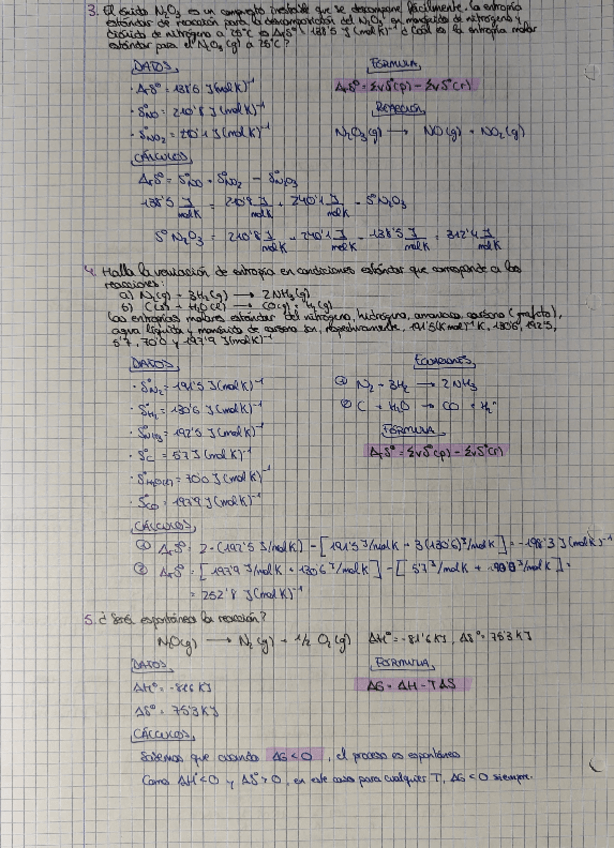 3. El óxido N₂O₃ es un compuesto inestable que se descompone fácilmente. La entropía
estándar de reacción para la descomposición del N₂O₃ en monóxido de nitrógeno y
dióxido de nitrógeno a 25°C es ΔrS° = 138'5 J (mol K)⁻¹ ¿Cuál es la entropía molar
estándar para el N₂O₃ (g) a 25°C?
DATOS
FÓRMULA
· ΔrS° = 138'5 J (mol K)⁻¹
ΔrS° = ΣνS°(p) - ΣνS°(r)
· S°NO = 210'8 J (mol K)⁻¹
REACCIÓN
· S°NO₂ = 240'1 J (mol K)⁻¹
N₂O₃(g) → NO(g) + NO₂(g)
CÁLCULOS
ΔrS° = S°NO + S°NO₂ - S°N₂O₃
138'5 J/mol K = 210'8 J/mol K + 240'1 J/mol K - S°N₂O₃
S°N₂O₃ = 210'8 J/mol K + 240'1 J/mol K - 138'5 J/mol K = 312'4 J/mol K
4. Halla la variación de entropía en condiciones estándar que corresponde a las
reacciones:
a) N₂(g) + 3H₂(g) → 2NH₃(g)
b) C(s) + H₂O(l) → CO(g) + H₂(g)
Las entropías molares estándar del nitrógeno, hidrógeno, amoniaco, carbono (grafito),
agua líquida y monóxido de carbono son, respectivamente, 191'5 130'6, 192'5,
5'7, 70'0 y 197'9 J(mol K)⁻¹
DATOS
ECUACIONES
· S°N₂ = 191'5 J (mol K)⁻¹
① N₂ + 3H₂ → 2NH₃
· S°H₂ = 130'6 J (mol K)⁻¹
② C + H₂O → CO + H₂
· S°NH₃ = 192'5 J (mol K)⁻¹
FÓRMULA
· S°C = 5'7 J (mol K)⁻¹
ΔrS° = ΣνS°(p) - ΣνS°(r)
· S°H₂O(l) = 70'0 J (mol K)⁻¹
· S°CO = 197'9 J (mol K)⁻¹
CÁLCULOS
① ΔrS° = 2·(192'5 J/mol K) - [191'5 J/mol K + 3(130'6) J/mol K] = -198'3 J (mol K)⁻¹
② ΔrS° = [197'9 J/mol K + 130'6 J/mol K] - [5'7 J/mol K + J/mol K] =
= 252'8 J (mol K)⁻¹
5. ¿Será espontánea la reacción?
NO(g) → N₂(g) + 1/2 O₂(g) ΔH° = -81'6 KJ, ΔS° = 75'3 KJ
DATOS
FÓRMULA
ΔH° = -81'6 KJ
ΔG = ΔH - TΔS
ΔS° = 75'3 KJ
CÁLCULOS
Sabemos que cuando ΔG < 0, el proceso es espontáneo
Como ΔH < 0 y ΔS° > 0, en este caso para cualquier T, ΔG < 0 siempre.